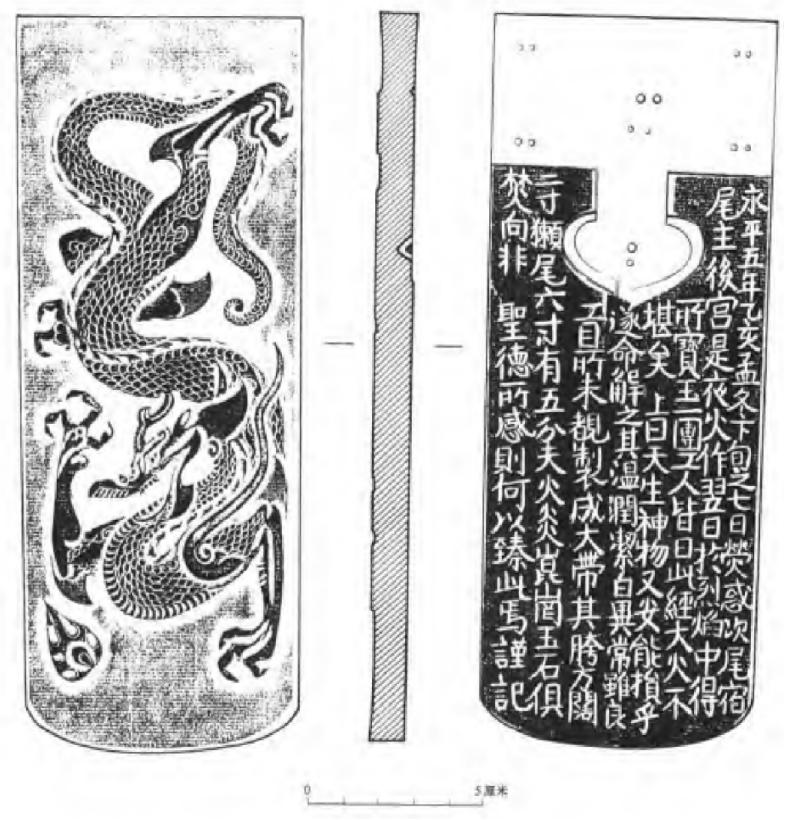 永平五年乙亥孟冬下旬之七日熒惑次尾宿
尾主後宮是夜火作翌日於烈焰中得
所寶玉一團工人皆曰此經大火不
堪矣 上曰天生神物又安能損乎
遂命解之其溫潤潔白異常雖良
工目所未覩製成大帶其胯方闊
二寸獺尾六寸有五分夫火炎崑崗玉石俱
焚向非 聖德所感則何以臻此焉謹記
0 5厘米